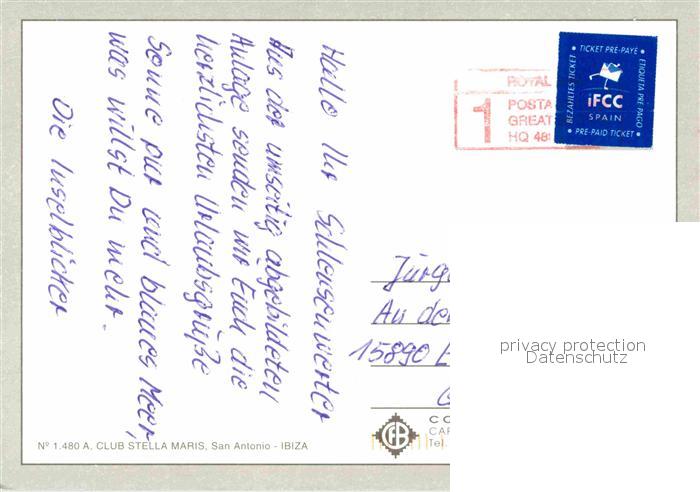 Hallo Ihr Schleusenwerter
Aus der umseitig abgebildeten
Anlage senden wir Euch die
herzlichsten Urlaubsgrüße
Sonne pur und blaues Meer,
was willst Du mehr.
Die Inselblicker
ROYAL
1
POSTA
GREAT
HQ 48
TICKET PRE-PAYÉ
BEZAHLTES TICKET
ETIQUETA PRE-PAGO
iFCC
SPAIN
PRE-PAID TICKET
Jürg
An de
15890
privacy protection
Datenschutz
CFB
CO
CAR
Tel.
Nº 1.480 A. CLUB STELLA MARIS, San Antonio - IBIZA